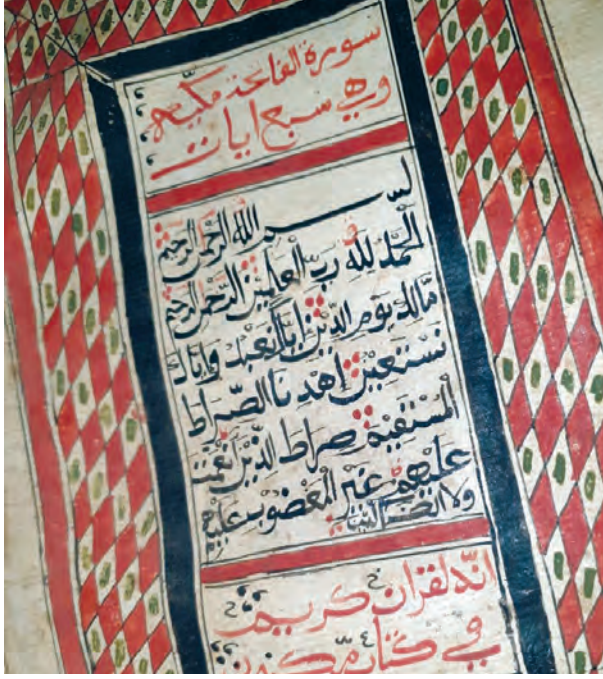 سورة الفاتحة مكية
وهي سبع ايات
بسم الله الرحمن الرحيم
الْحَمْدُ لِلَّهِ رَبِّ الْعٰلَمِيْنَ الرَّحْمٰنِ الرَّحِيْمِ
مَالِكِ يَوْمِ الدِّيْنِ اِيَّاكَ نَعْبُدُ وَاِيَّاكَ
نَسْتَعِيْنُ اِهْدِنَا الصِّرَاطَ
الْمُسْتَقِيْمَ صِرَاطَ الَّذِيْنَ اَنْعَمْتَ
عَلَيْهِمْ غَيْرِ الْمَغْضُوْبِ عَلَيْهِمْ
وَلَا الضَّالِّيْنَ
انه لقران كريم
في كتاب مكنون